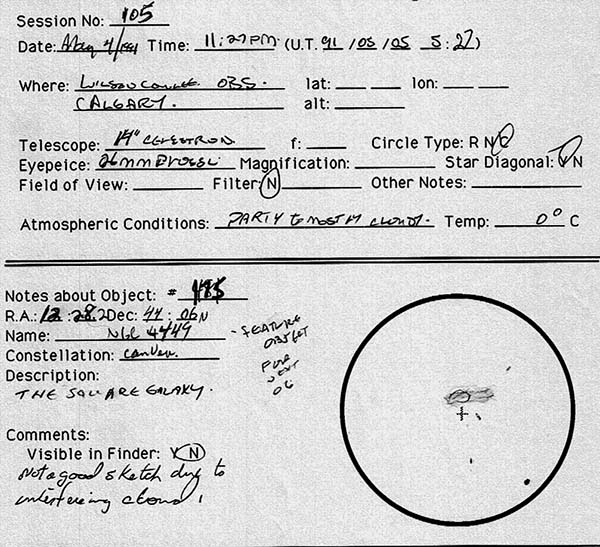 Session No: 105
Date: May 4/1991 Time: 11:27PM (U.T. 91 /05 /05 5:27)
Where: WILSON COULEE OBS. lat: lon:
CALGARY. alt:
Telescope: 14" CELESTRON f: Circle Type: R N C
Eyepeice: 26mm Magnification: Star Diagonal: Y N
Field of View: Filter: N Other Notes:
Atmospheric Conditions: PARTY to MOSTLY CLOUDY. Temp: 0° C
Notes about Object: # 485
R.A.: 12 :28.2 Dec: 44 : 06N
Name: NGC 4449 - FEATURE OBJECT FOR NEXT
Constellation: CanVen.
Description:
THE SQUARE GALAXY.
Comments:
Visible in Finder: Y N
Not a good sketch due to
interfering cloud!